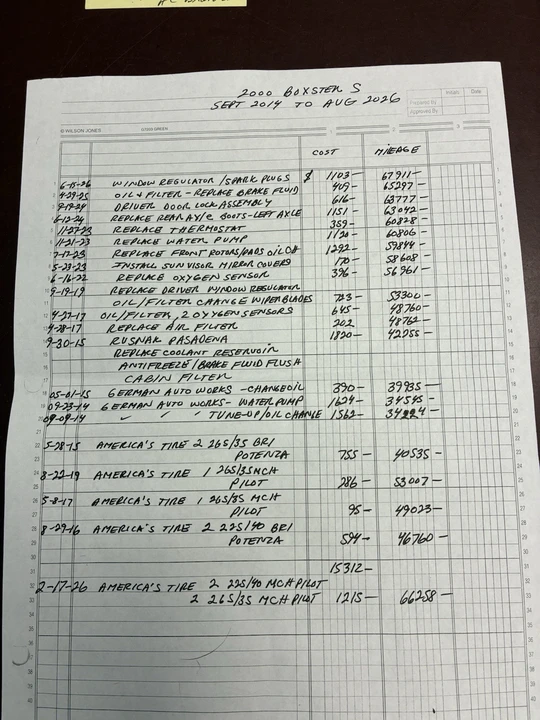 2000 BOXSTER S
SEPT 2014 TO AUG 2026
Initials Date
Prepared By
Approved By
© WILSON JONES G7203 GREEN
1 2 3
COST MILEAGE
6-15-26 WINDOW REGULATOR/SPARK PLUGS $ 1103- 67911-
4-29-25 OIL & FILTER - REPLACE BRAKE FLUID 409- 65297-
9-19-24 DRIVER DOOR LOCK ASSEMBLY 616- 63777-
6-12-24 REPLACE REAR AX/C BOOTS-LEFT AXLE 1151- 63042-
11-27-23 REPLACE THERMOSTAT 359- 60828-
11-21-23 REPLACE WATER PUMP 1120- 60806-
7-17-23 REPLACE FRONT ROTORS/PADS OIL CH 1292- 59844-
5-23-23 INSTALL SUN VISOR MIRROR COVERS 170- 58608-
6-16-22 REPLACE OXYGEN SENSOR 396- 56961-
9-19-19 REPLACE DRIVER WINDOW REGULATOR
OIL/FILTER CHANGE WIPER BLADES 723- 53300-
4-27-17 OIL/FILTER, 2 OXYGEN SENSORS 645- 48760-
4-28-17 REPLACE AIR FILTER 202 48762-
9-30-15 RUSNAK PASADENA 1820- 42255-
REPLACE COOLANT RESERVOIR
ANTIFREEZE/BRAKE FLUID FLUSH
CABIN FILTER
05-01-15 GERMAN AUTO WORKS - CHANGE OIL 390- 39935-
09-23-14 GERMAN AUTO WORKS - WATER PUMP 1624- 34545-
09-09-14 " " TUNE-UP/OIL CHANGE 1562-
5-28-15 AMERICA'S TIRE 2 265/35 BRI
POTENZA 755- 40535-
8-22-19 AMERICA'S TIRE 1 265/35 MCH
PILOT 286- 53007-
5-8-17 AMERICA'S TIRE 1 265/35 MCH
PILOT 95- 49023-
8-29-16 AMERICA'S TIRE 2 225/40 BRI
POTENZA 594- 46760-
15312-
2-17-26 AMERICA'S TIRE 2 225/40 MCH PILOT
2 265/35 MCH PILOT 1215- 66258-